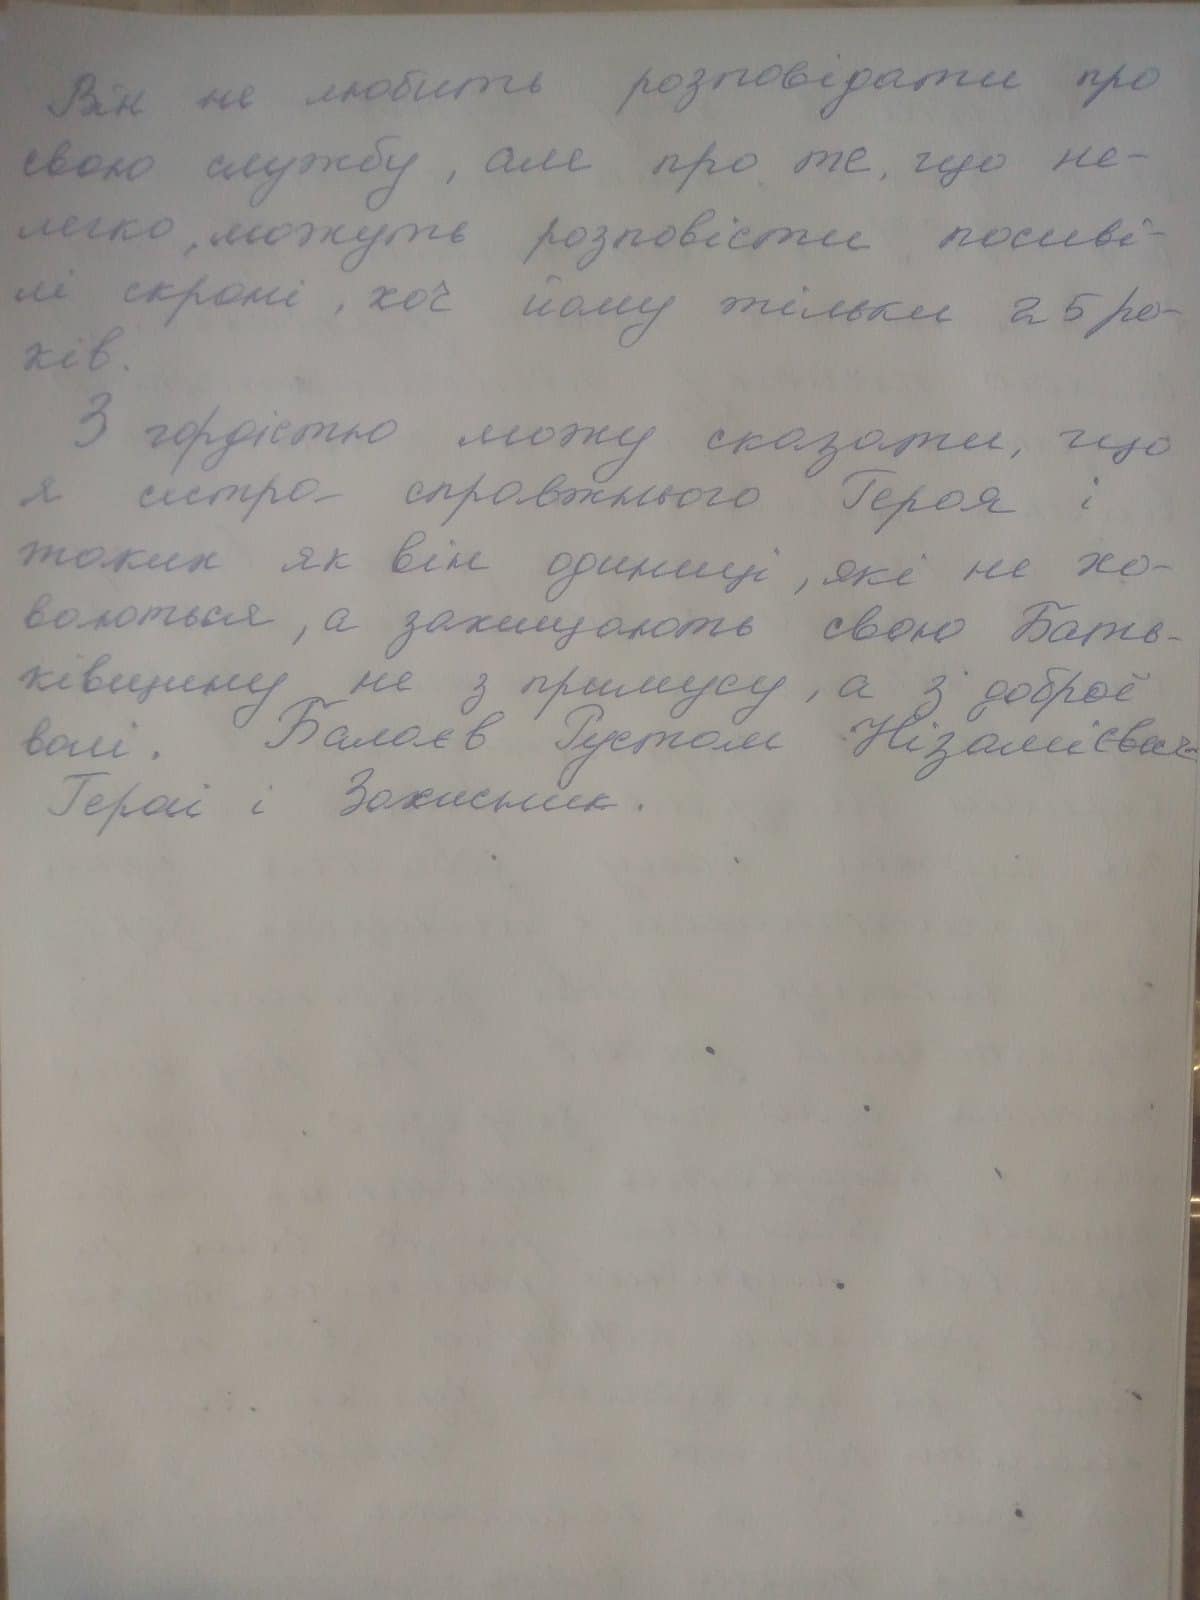 Він не любить розповідати про
свою службу, але про те, що не-
легко, можуть розповісти посиві-
лі скроні, хоч йому тільки 25 ро-
ків.
З гордістю можу сказати, що
я систра справжнього Героя і
таких як він одиниці, які не хо-
ваються, а захищають свою Бать-
ківщину не з примусу, а з доброї
волі. Балаєв Рустам Нізамієвич
Герой і Захисник.